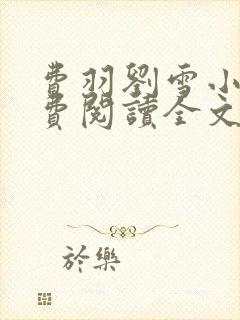 費羽劉雪小
費閱讀全文
於樂